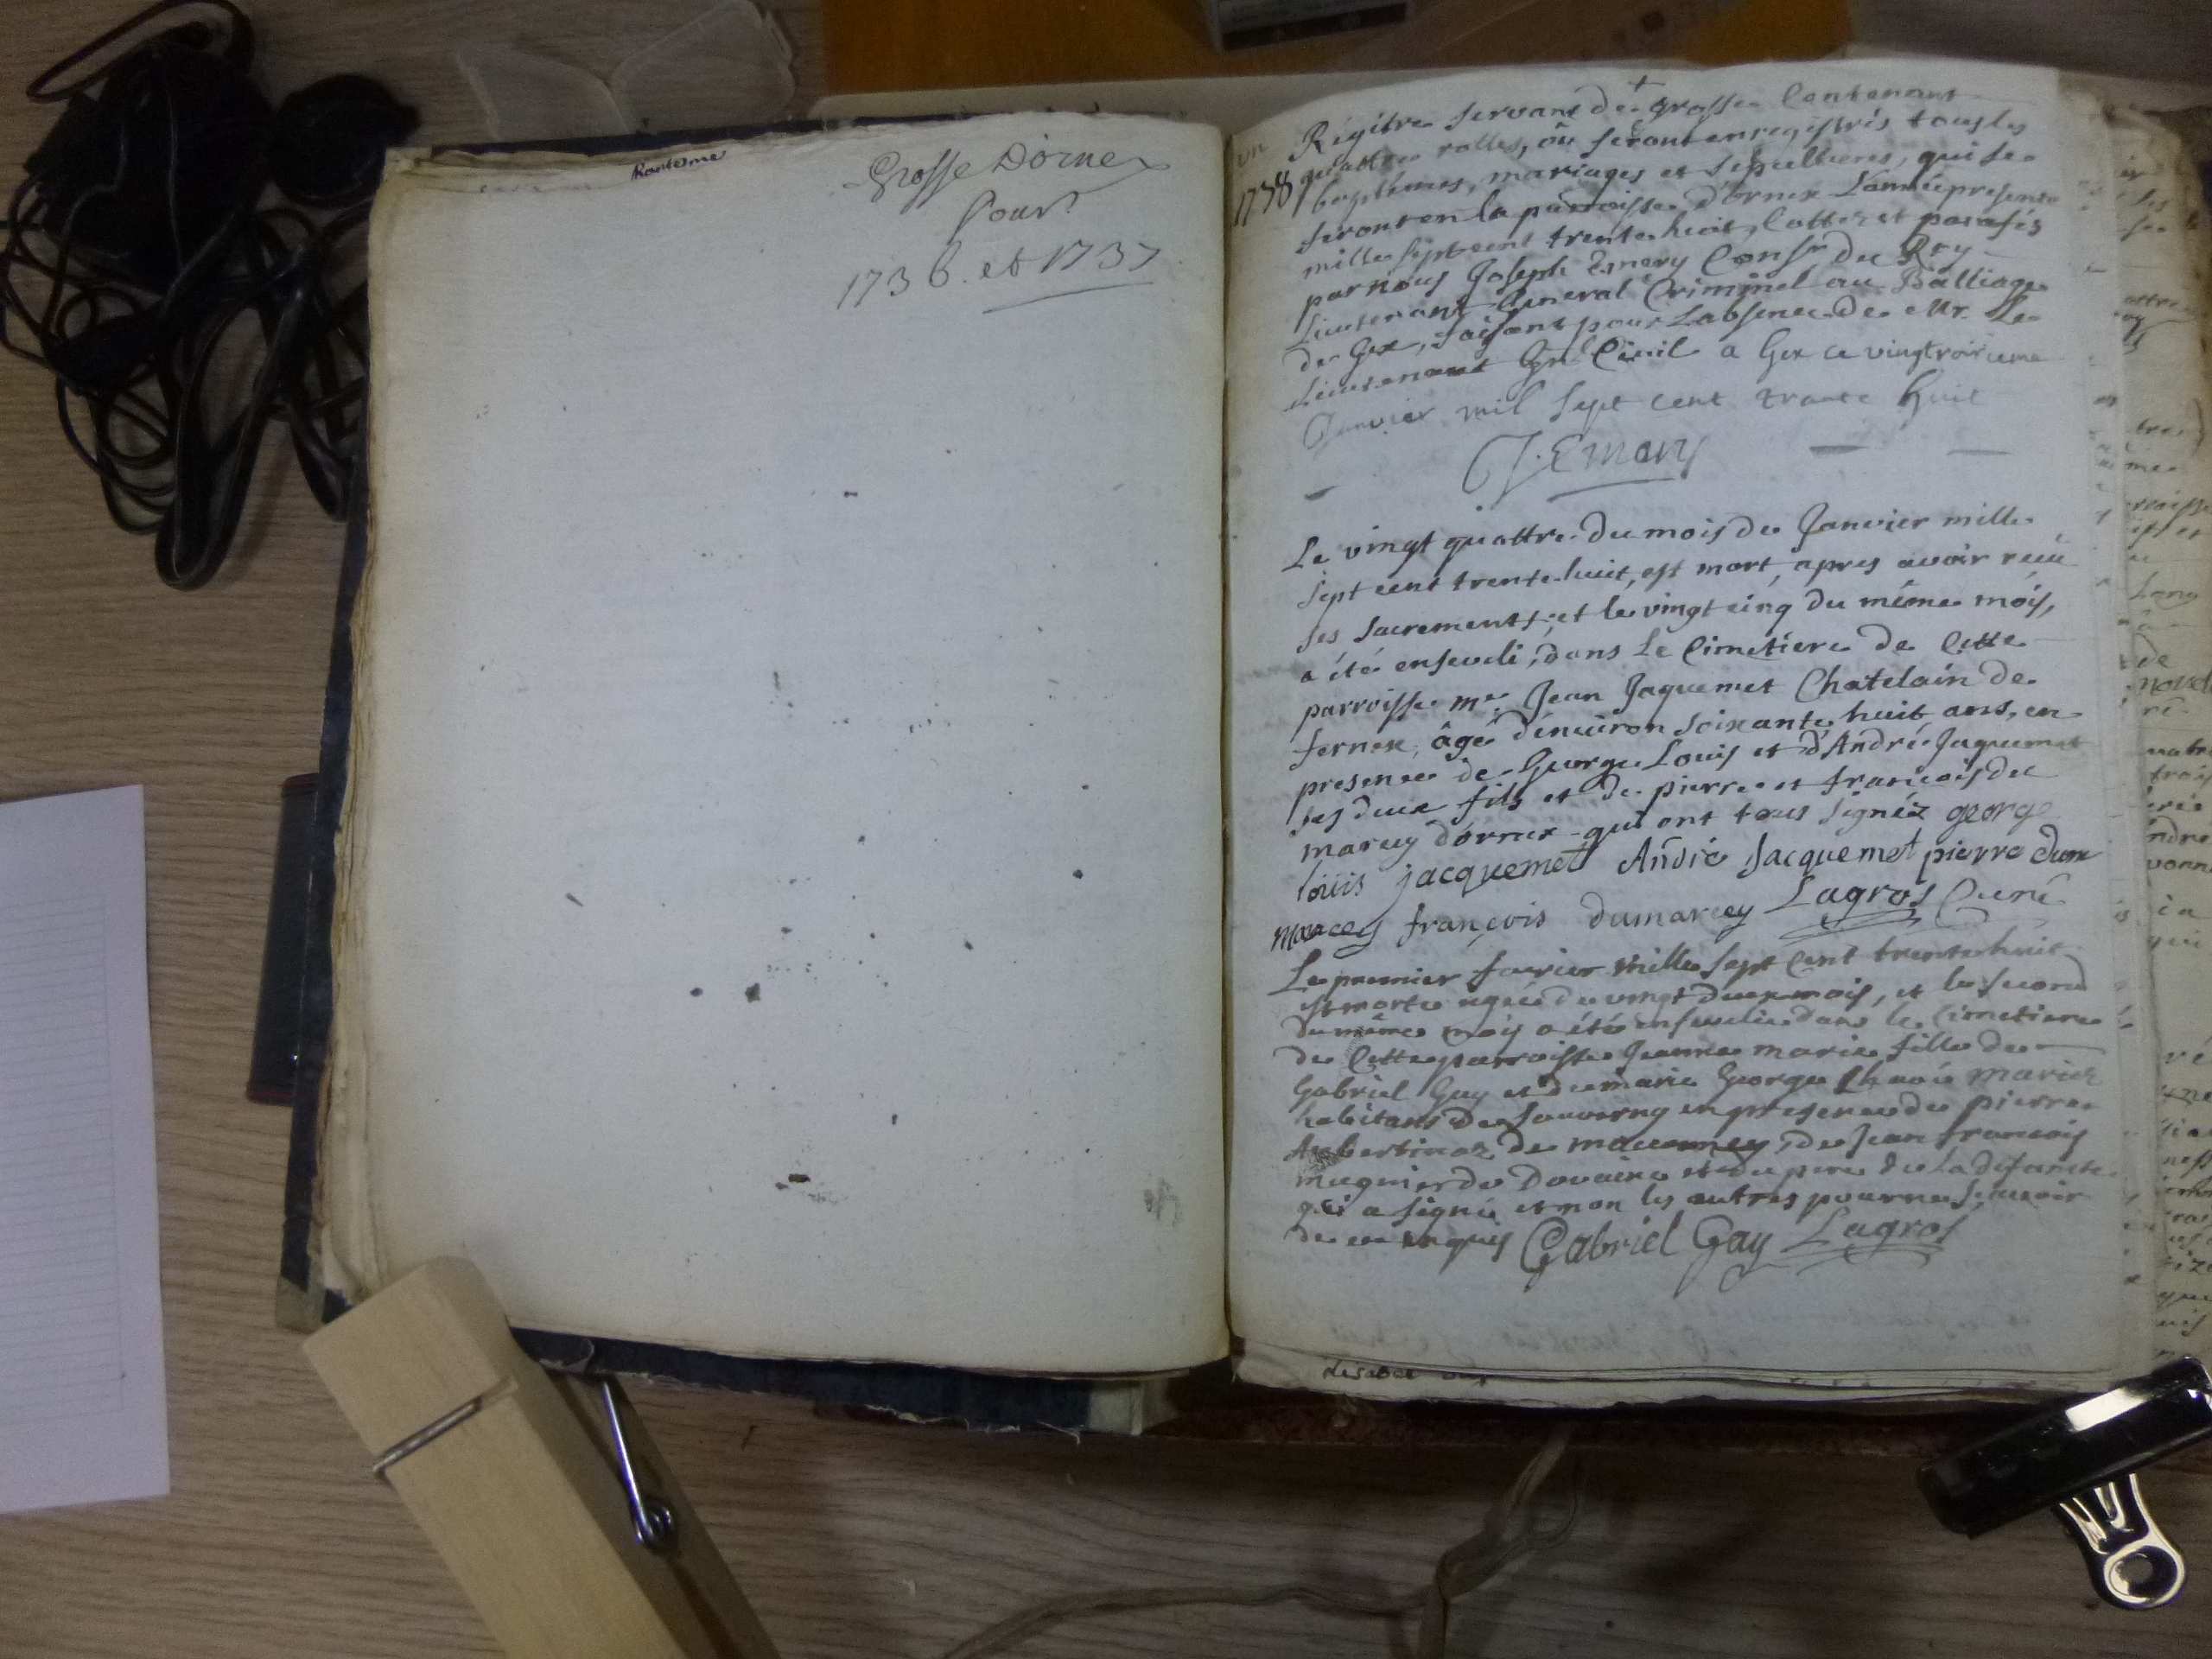 Grosse Dornex
Pour
1736. et 1737
un
1738
Régitre servant de grosse Contenant
quattre rolles, où seront enregistrés tous les
baptêmes, mariages et sepultures, qui se
feront en la parroisse d'ornex L'année presente
mille sept cent trente huit, Cottez et parafés
par nous Joseph Emery Consr du Roy
Lieutenant General Criminel au Balliage
de Gex, faisant pour L'absence de Mr. Le
Lieutenant Gnl Civil a Gex ce vingtroisieme
Janvier mil sept cent trante huit
J. Emery
Le vingt quattre du mois de Janvier mille
sept cent trente-huit, est mort, apres avoir reçu
ses sacrements; et le vingt cinq du même mois,
a été enseveli, dans Le Cimetiere de Cette
parroisse mr. Jean Jaquemet Chatelain de
fernex, âgé d'environ soixante huit ans, en
presence de George Louis et d'André Jaquemet
ses deux fils et de pierre et francois du
marcey d'ornex qui ont tous signéz george
louis jacquemet André Jacquemet pierre dum
marcey françois dumarcey Lagros Curé
Le premier fevrier mille sept Cent trente huit
est morte agée de vingt deux mois, et le second
du même mois a été ensevelie dans le Cimetiere
de Cette parroisse Jeanne marie fille de
Gabriel Gay et de marie George mariez
habitans de Sauverny en presence de pierre
de de Jean francois
de Dovaine et du pere de la défunte
qui a signé et non les autres pour ne sçavoir
de ce enquis Gabriel Gay Lagros